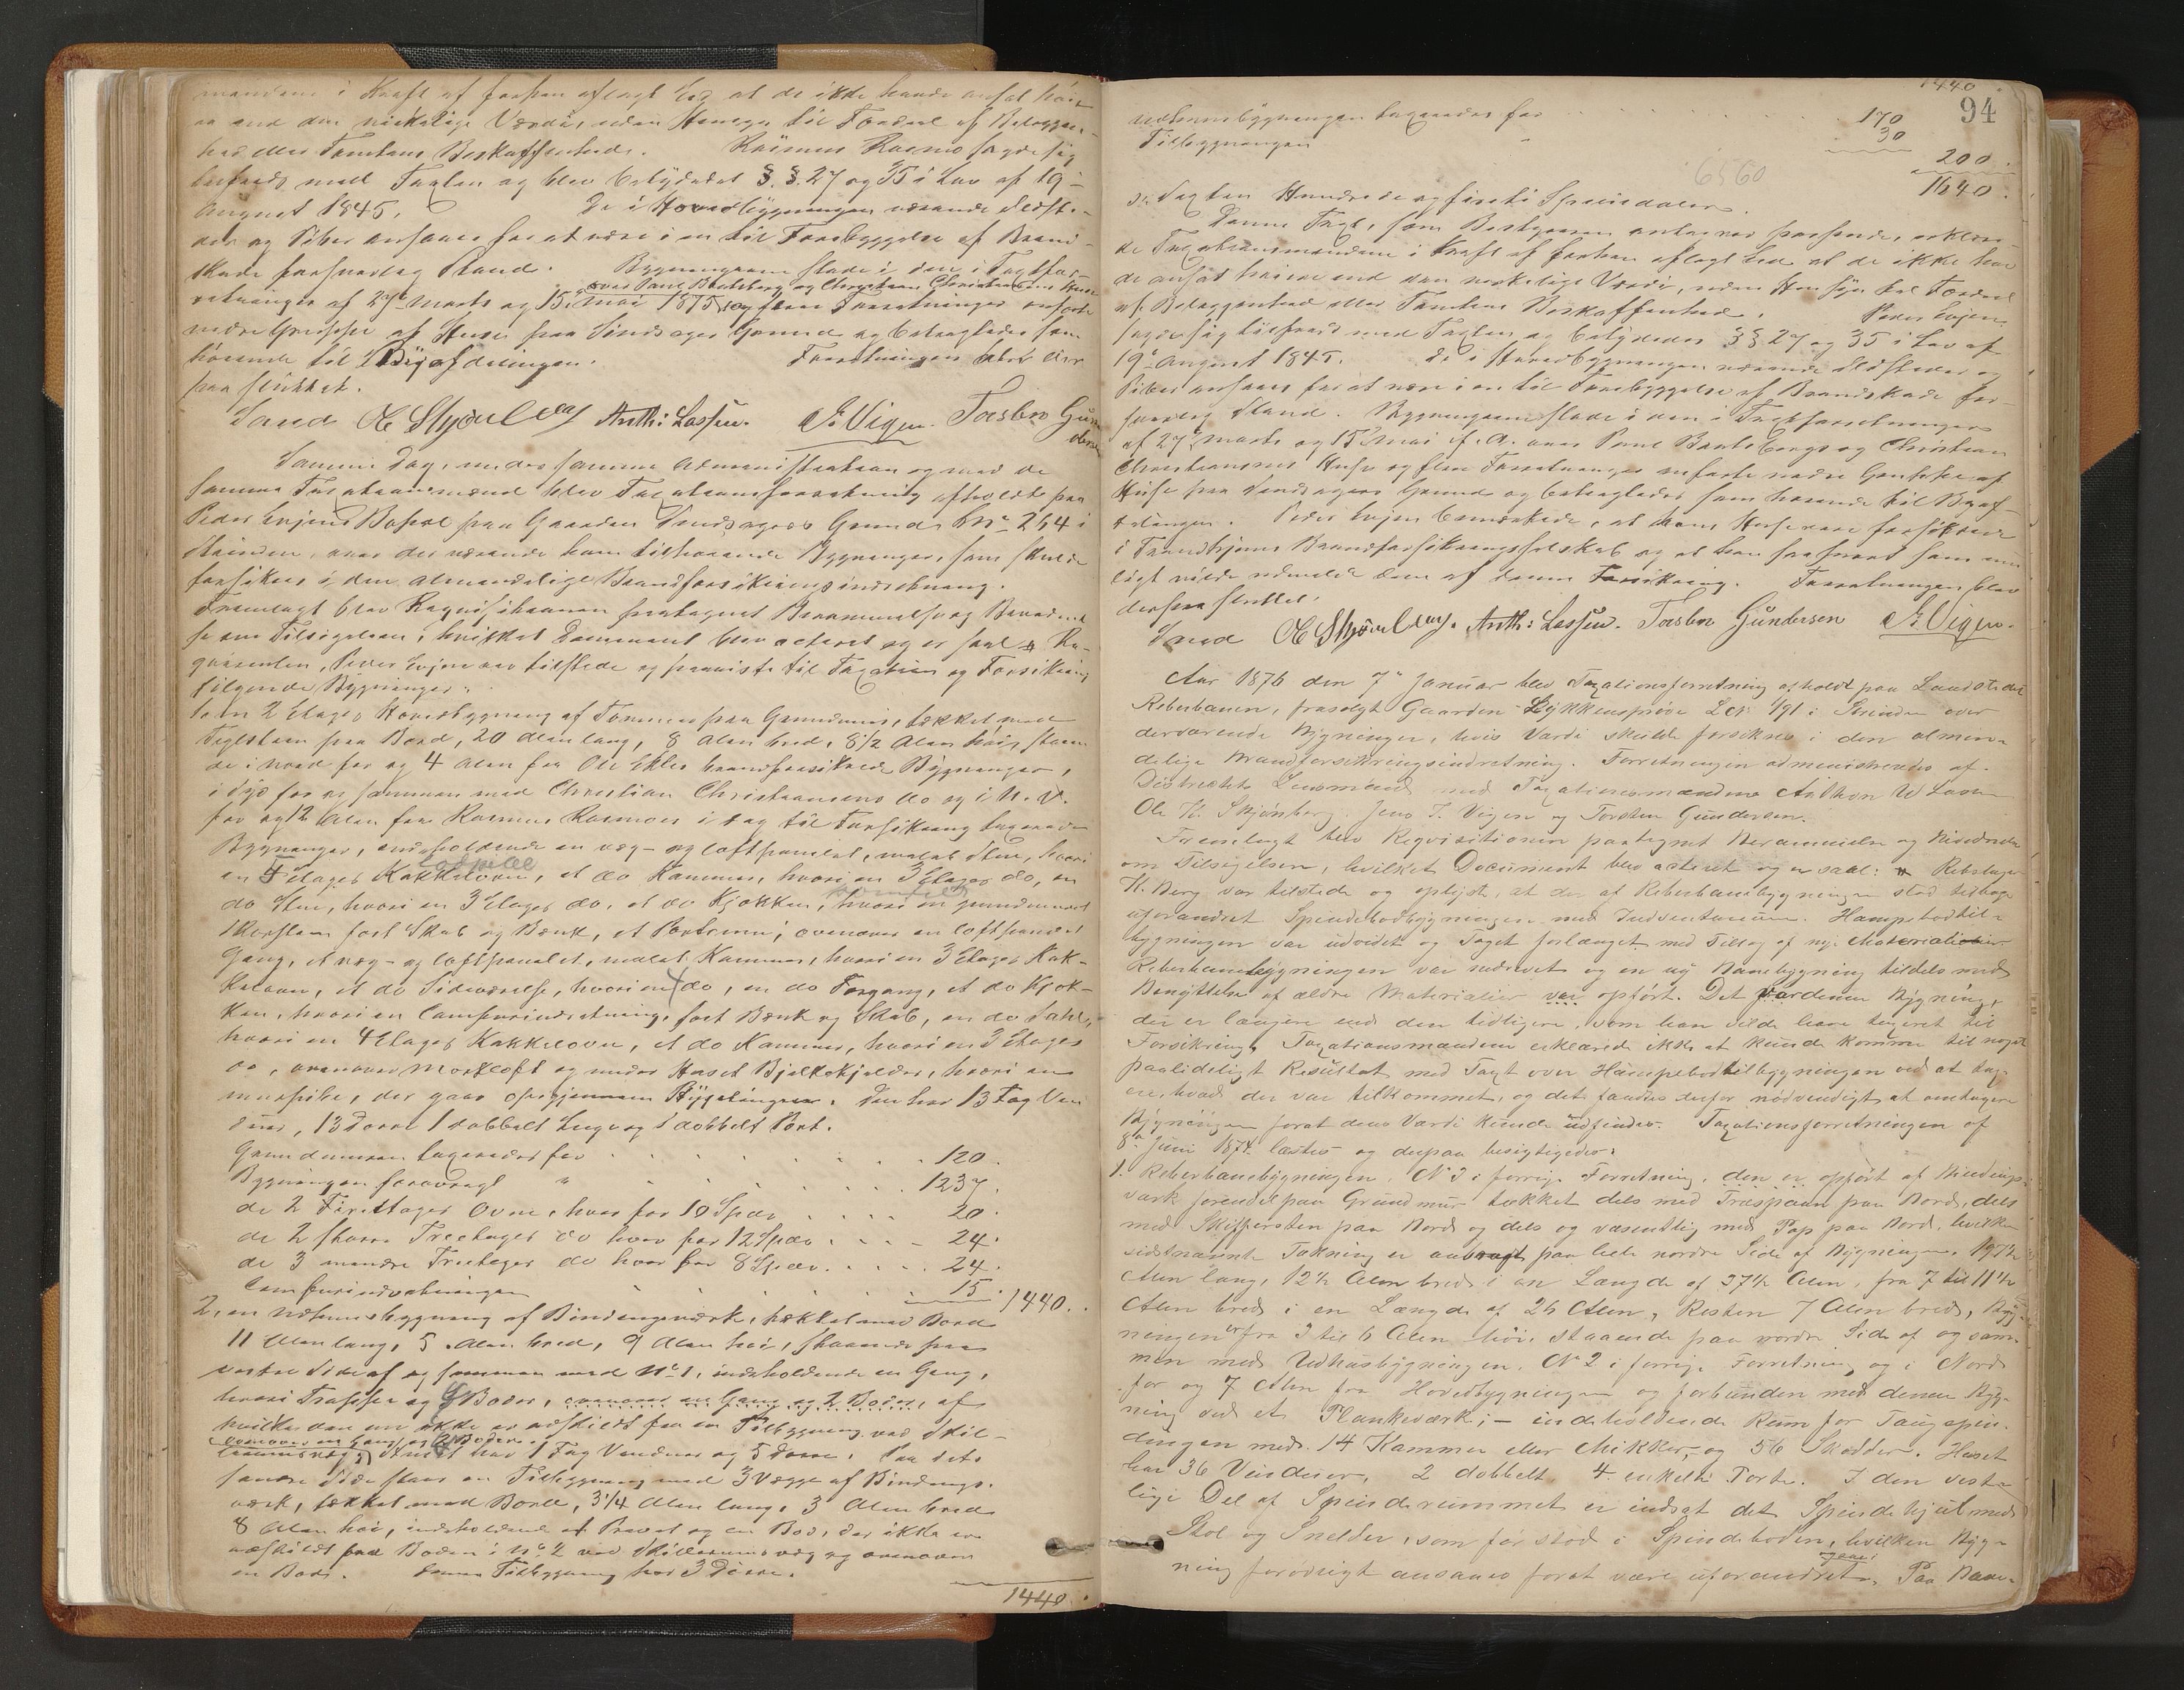 mændene i Kraft af forhen aflagt Eed at de ikke havde ansat høie
re end den virkelige Værdi, uden Hensyn til Fordeel af Beliggen-
hed eller Tomtens Beskaffenhed. Rasmus Rasmo sagde sig
tilfreds med Taxten og blev betydet §.§. 27 og 35 i Lov af 19-
August 1845. De i Hovedbygningen værende Ildste-
der og Piber ansaaes for at være i en til Forebyggelse af Brand-
skade forsvarlig Stand. Bygningerne staae i den i Taxtfor-
over Paul Bratsberg og Christian Christiansens Huse
retninger af 27de Marts og 15de Mai 1875 og flere Forretninger anførte
nedre Gruppe af Huse paa Lindsagers Grund og betragtedes som
hørende til Byafdelingen. Forretningen blev der
paa sluttet.
Sand O K Skjønberg Anth: Lassen. J. Vigen. Torsten Gun
dersen
Samme Dag, under samme Administration og med de
samme Taxationsmænd blev Taxationsforretning afholdt paa
Peder Evjens Bopæl paa Gaarden Lindsagers Grund LNo 264 i
Strinden, over der værende ham tilhørende Bygninger, som skulde
forsikres i den almindelige Brandforsikringsindretning.
Fremlagt blev Requisitionen paategnet Berammelse og Beviidnel
se om Tilsigelsen, hvilket Document blev acteret og er saal. Re-
quirenten, Peder Evjen var tilstede og paaviste til Taxation og Forsikring
følgende Bygninger:
1. en 2 Etages Hovedbygning af Tømmer paa Grundmuur, tækket med
Teglsteen paa Bord, 20 Alen lang, 8 Alen bred, 8 1/2 Alen høi, staaen
de i Nord for og 4 Alen fra Ole Ekles brandforsikrede Bygninger,
i Syd for og sammen med Christian Christiansens do og i N. V.
for og 12 Alen fra Rasmus Rasmoes i dag til Forsikring taxerede
Bygninger, indeholdende en væg- og loftpanelet, malet Stue, hvori
en 4 Etages Kakkelovn, et do Kammer, hvori en 3 Etages do, en
do Stue, hvori en 3 Etages do, et do Kjøkken, hvori en grundmuret
Skorsteen fast Skab og Bænk, et Portrum; ovenover en loftpanelet
Gang, et væg- og loftpanelet, malet Kammer, hvori en 3 Etages Kak-
kelovn, et do Sideværelse, hvori en do, en do Forgang, et do Kjøk-
ken, hvori en Comfurindretning, fast Bænk og Skab, en do Sahl,
hvori en 4 Etages Kakkelovn, et do Kammer, hvori en 3 Etages
do, ovenover Mørkloft og under Huset Bjelkekjelder, hvori en
muurpibe, der gaar op igjennem Bygningen. Den har 13 Fag Vin
duer, 13 Dørre 1 dobbelt Luge og 1 dobbelt Port.
Grundmuren taxeredes for 120.
Bygningen forøvrigt " 1237.
de 2 Fireetages Ovne, hver for 10 Spdr 20.
de 2 større Treetages do hver for 12 Spdr 24.
de 3 mindre Treetages do hver for 8 Spdr. 24.
Comfurindretningen 15. 1440.
2, en Udhuusbygning af Bindingsværk, tækket med Bord
11 Alen lang, 5 Alen bred, 9 Alen høi, staaende paa
vestre Side af og sammen med No 1, indeholdende en Gang,
hvori Trappe og 4 Boder, ovenover en Gang og 2 Boder, af
hvilke den ene ikke er adskildt fra en Tilbygning ved Skil-
ovenover en Gang og 2 Boder
lerumsvæg. Huset har 1 Fag Vinduer og 5 Dørre. Paa dets
søndre Side staar en Tilbygning med 3 Vægge af Bindings-
værk, tækket med Bord, 3 1/4 Alen lang, 3 Alen bred
8 Alen høi, indeholdende et Privet og en Bod, der ikke er
adskildt fra Boden i No 2 ved Skillerumsvæg og ovenover
en Bod. Denne Tilbygning har 3 Dørre.
1440.
1440.
94
Udhuusbygningen taxeredes for 170
Tilbygningen " 30
200.
6560
1640.
Sexten Hundrede og firti Speciedaler.
Denne Taxt, som Bestyreren antog var passende, erklære-
de Taxationsmændene i Kraft af forhen aflagt Eed at de ikke hav
de ansat høiere end den virkelige Værdi, uden Hensyn til Fordeel
af Beliggenhed eller Tomtens Beskaffenhed. Peder Evjen
sagde sig tilfreds med Taxten og betydedes §§ 27 og 35 i Lov af
19de August 1845. De i Hovedbygningen værende Ildsteder og
Piber ansaaes for at være i en til Forebyggelse af Brandskade for-
svarlig Stand. Bygningerne staae i den i Taxtforretninger
af 27de Marts og 15de Mai d. A. over Paul Bratsbergs og Christian
Christiansens Huse og flere Forretninger anførte nedre Gruppe af
Huse paa Lindsagers Grund og betragtedes som hørende til Byaf-
delingen. Peder Evjen bemærkede, at hans Huse vare forsikrede
i Trondhjems Brandforsikringsselskab og at han saasnart som mu
ligt vilde udmelde dem af denne Forsikring. Forretningen blev
derpaa sluttet.
Sand O K Skjønberg. Anth: Lassen. Torsten Gundersen J. Vigen.
Aar 1876 den 7de Januar blev Taxationsforretning afholdt paa Landstedet
Reberbanen, frasolgt Gaarden Lykkensprøve LNo 191 i Strinden over
derværende Bygninger, hvis Værdi skulde forsikres i den almin-
delige Brandforsikringsindretning. Forretningen administreredes af
Districtets Lensmand med Taxationsmændene Anthon W Lassen
Ole K. Skjønberg. Jens J. Vigen og Torsten Gundersen.
Fremlagt blev Reqvisitionen paategnet Berammelse og Bevidnelse
om Tilsigelsen, hvilket Document blev acteret og er saal: Rebslager
H. Berg var tilstede og oplyste, at der af Reberbanebygningen stod tilbage
uforandret Spindebodbygningen med Indventarium. Hampebodtil-
bygningen var udvidet og Taget forlænget med Tillæg af nye Materialier
Reberbanebygningen var nedrevet og en ny Banebygning tildels med
Benyttelse af ældre Materialier var opført. Det var denne Bygning,
der er længere end den tidligere, som han vilde have taxeret til
Forsikring. Taxationsmændene erklærede ikke at kunde komme til noget
paalideligt Resultat med Taxt over Hampebodtilbygningen ved at tax-
ere, hvad der var tilkommet, og det fandtes derfor nødvendigt at omtaxere
Bygningen forat dens Værdi kunde udfindes. Taxationsforretningen af
8de Juni 1874 læstes og derpaa besigtigedes:
1. Reberbanebygningen, No 3 i forrige Forretning, den er opført af Bindings-
værk for en del paa Grundmur tækket dels med Træspaan paa Bord, dels
med Skifersten paa Bord og dels og væsentlig med Pap paa Bord, hvilken
sidstnævnte Tækning er anbragt paa hele nordre Side af Bygningen. 197 1/2
Alen lang, 12 1/2 Alen bred i en Længde af 37 1/2 Alen, fra 7 til 11 1/2
Alen bred i en Længde af 26 Alen, Resten 7 Alen bred, Byg-
ningen er fra 3 til 6 Alen høi, staaende paa nordre Side af og sam-
men med Udhusbygningen, No 2 i forrige Forretning og i Nord
for og 7 Alen fra Hovedbygningen og forbunden med denne Byg-
ning ved et Plankeværk; - indeholdende Rum for Taugspin-
dingen med 14 Kammer eller Mikker, og 56 Skodder. Huset
har 36 Vinduer, 2 dobbelt 4 enkelte Porte. I den vest-
lige Del af Spinderummet er indsat det Spindehjul med
Stol og Snelder, som før stod i Spindeboden, hvilken Byg-
ning forøvrigt ansaaes forat være uforandret. Paa Bane-